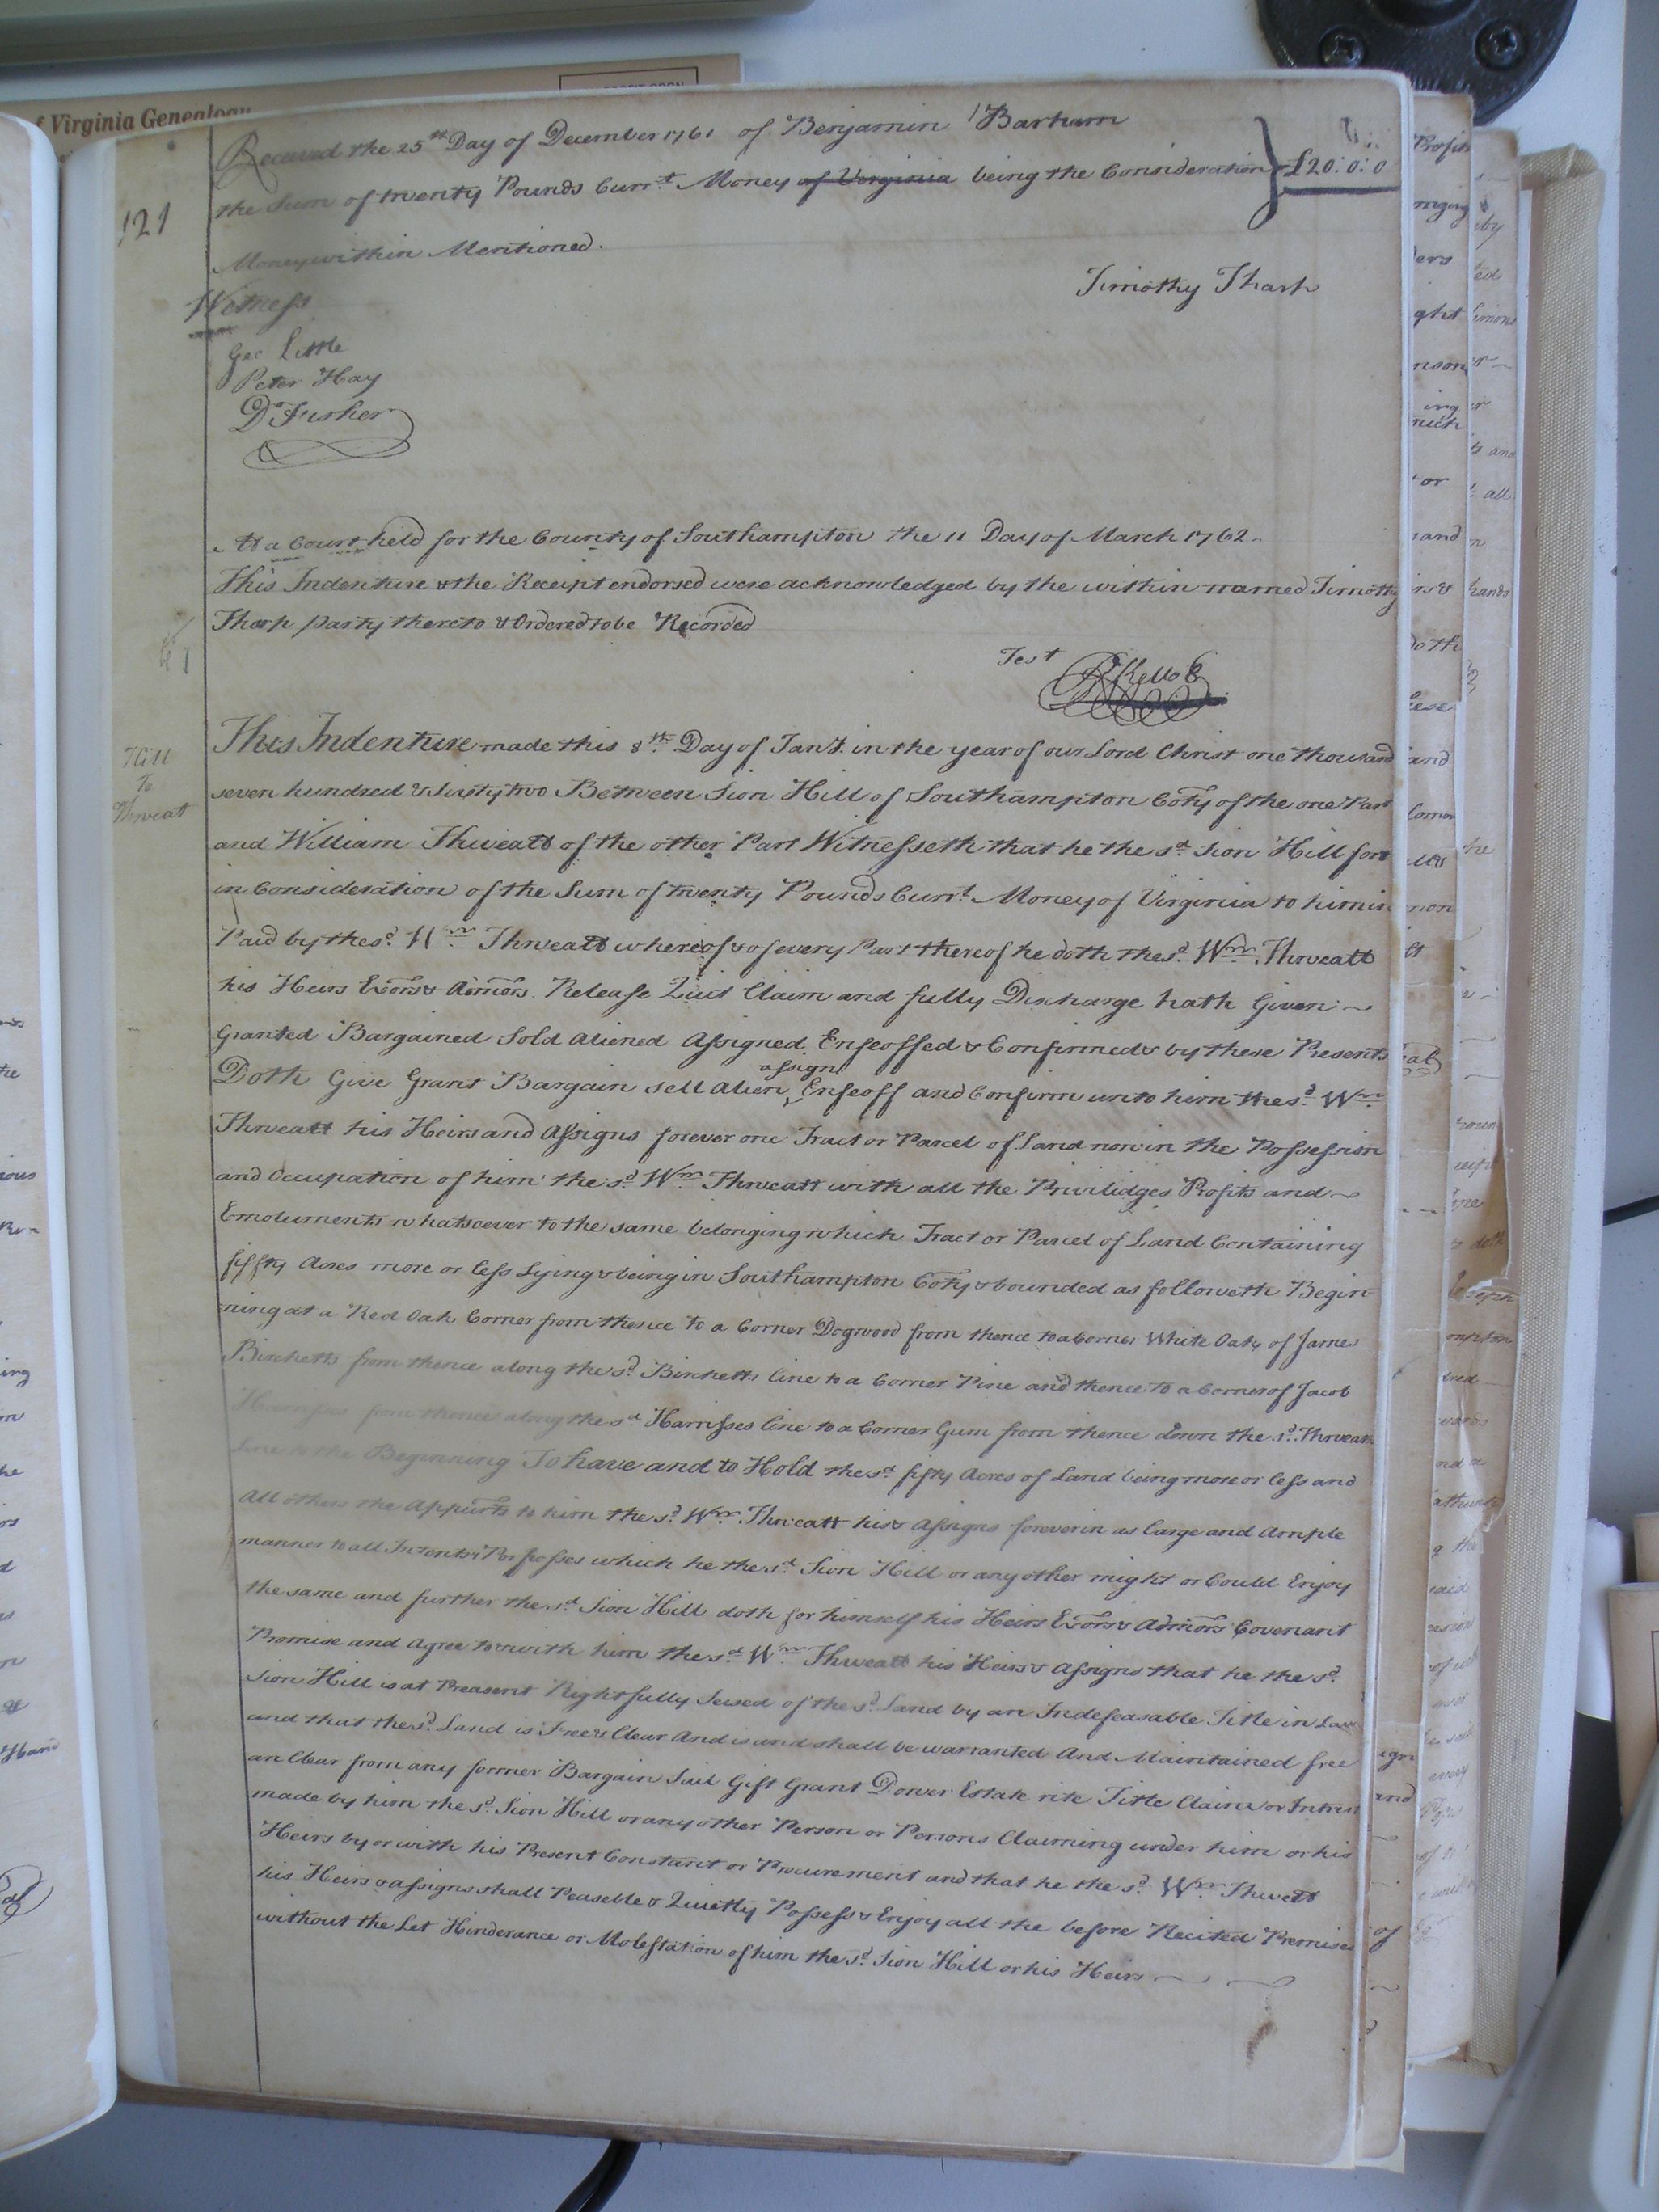 f Virginia Genealogy
121
Received the 25th Day of December 1761 of Benjamin Barham
the Sum of twenty Pounds Curr.t Money of Virginia being the Consideration } £20:0:0
Money within Mentioned.
Timothy Tharp
Witness
Geo Little
Peter Hay
D. Fisher
At a Court held for the County of Southampton the 11 Day of March 1762
This Indenture & the Receipt endorsed were acknowledged by the within named Timothy
Tharp party thereto & Ordered to be Recorded
Test
R Kello C
Hill
To
Thweat
This Indenture made this 8th. Day of Jany. in the year of our Lord Christ one thousand
seven hundred & sixty two Between Sion Hill of Southampton Coty of the one Part
and William Thweatt of the other Part Witnesseth that he the sd. Sion Hill for &
in Consideration of the Sum of twenty Pounds Curr.t Money of Virginia to him in
Paid by the sd. Wm. Thweatt whereof & of every Part thereof he doth the sd. Wm. Thweatt
his Heirs Exors & Admors. Release Quit Claim and fully Discharge hath Given
Granted Bargained Sold aliened Assigned Enfeoffed & Confirmed & by these Presents
Doth Give Grant Bargain sell alien assign Enfeoff and Confirm unto him the sd. Wm.
Thweatt his Heirs and Assigns forever one Tract or Parcel of Land now in the Possession
and Occupation of him the sd. Wm. Thweatt with all the Priviledges Profits and
Emoluments whatsoever to the same belonging which Tract or Parcel of Land Containing
fiffty Acres more or less Lying & being in Southampton Coty & bounded as followeth Begin
ning at a Red Oak Corner from thence to a Corner Dogwood from thence to a Corner White Oak of James
Birchetts from thence along the sd. Birchetts line to a Corner Pine and thence to a Corner of Jacob
Harrisses from thence along the sd. Harrisses line to a Corner Gum from thence down the sd. Thweats
line to the Beginning To have and to Hold the sd. fifty Acres of Land being more or less and
All others the Appurts to him the sd. Wm. Thweatt his & Assigns forever in as large and ample
manner to all Intents & Porposses which he the sd. Sion Hill or any other might or Could Enjoy
the same and further the sd. Sion Hill doth for himself his Heirs Exors & Admors Covenant
Promise and Agree to & with him the sd. Wm. Thweatt his Heirs & Assigns that he the sd.
Sion Hill is at Preasent Rightfully Seised of the sd. Land by an Indefeasable Title in Law
and that the sd. Land is Free & Clear And is and shall be warranted And Maintained free
an Clear from any former Bargain Sail Gift Grant Dower Estate rite Title Claim or Intrest
made by him the sd. Sion Hill or any other Person or Persons Claiming under him or his
Heirs by or with his Present Constant or Procurement and that he the sd. Wm. Thwett
his Heirs & assigns shall Peaseble & Quietly Possess & Enjoy all the before Recited Premises
without the Let Hinderance or Molestation of him the sd. Sion Hill or his Heirs